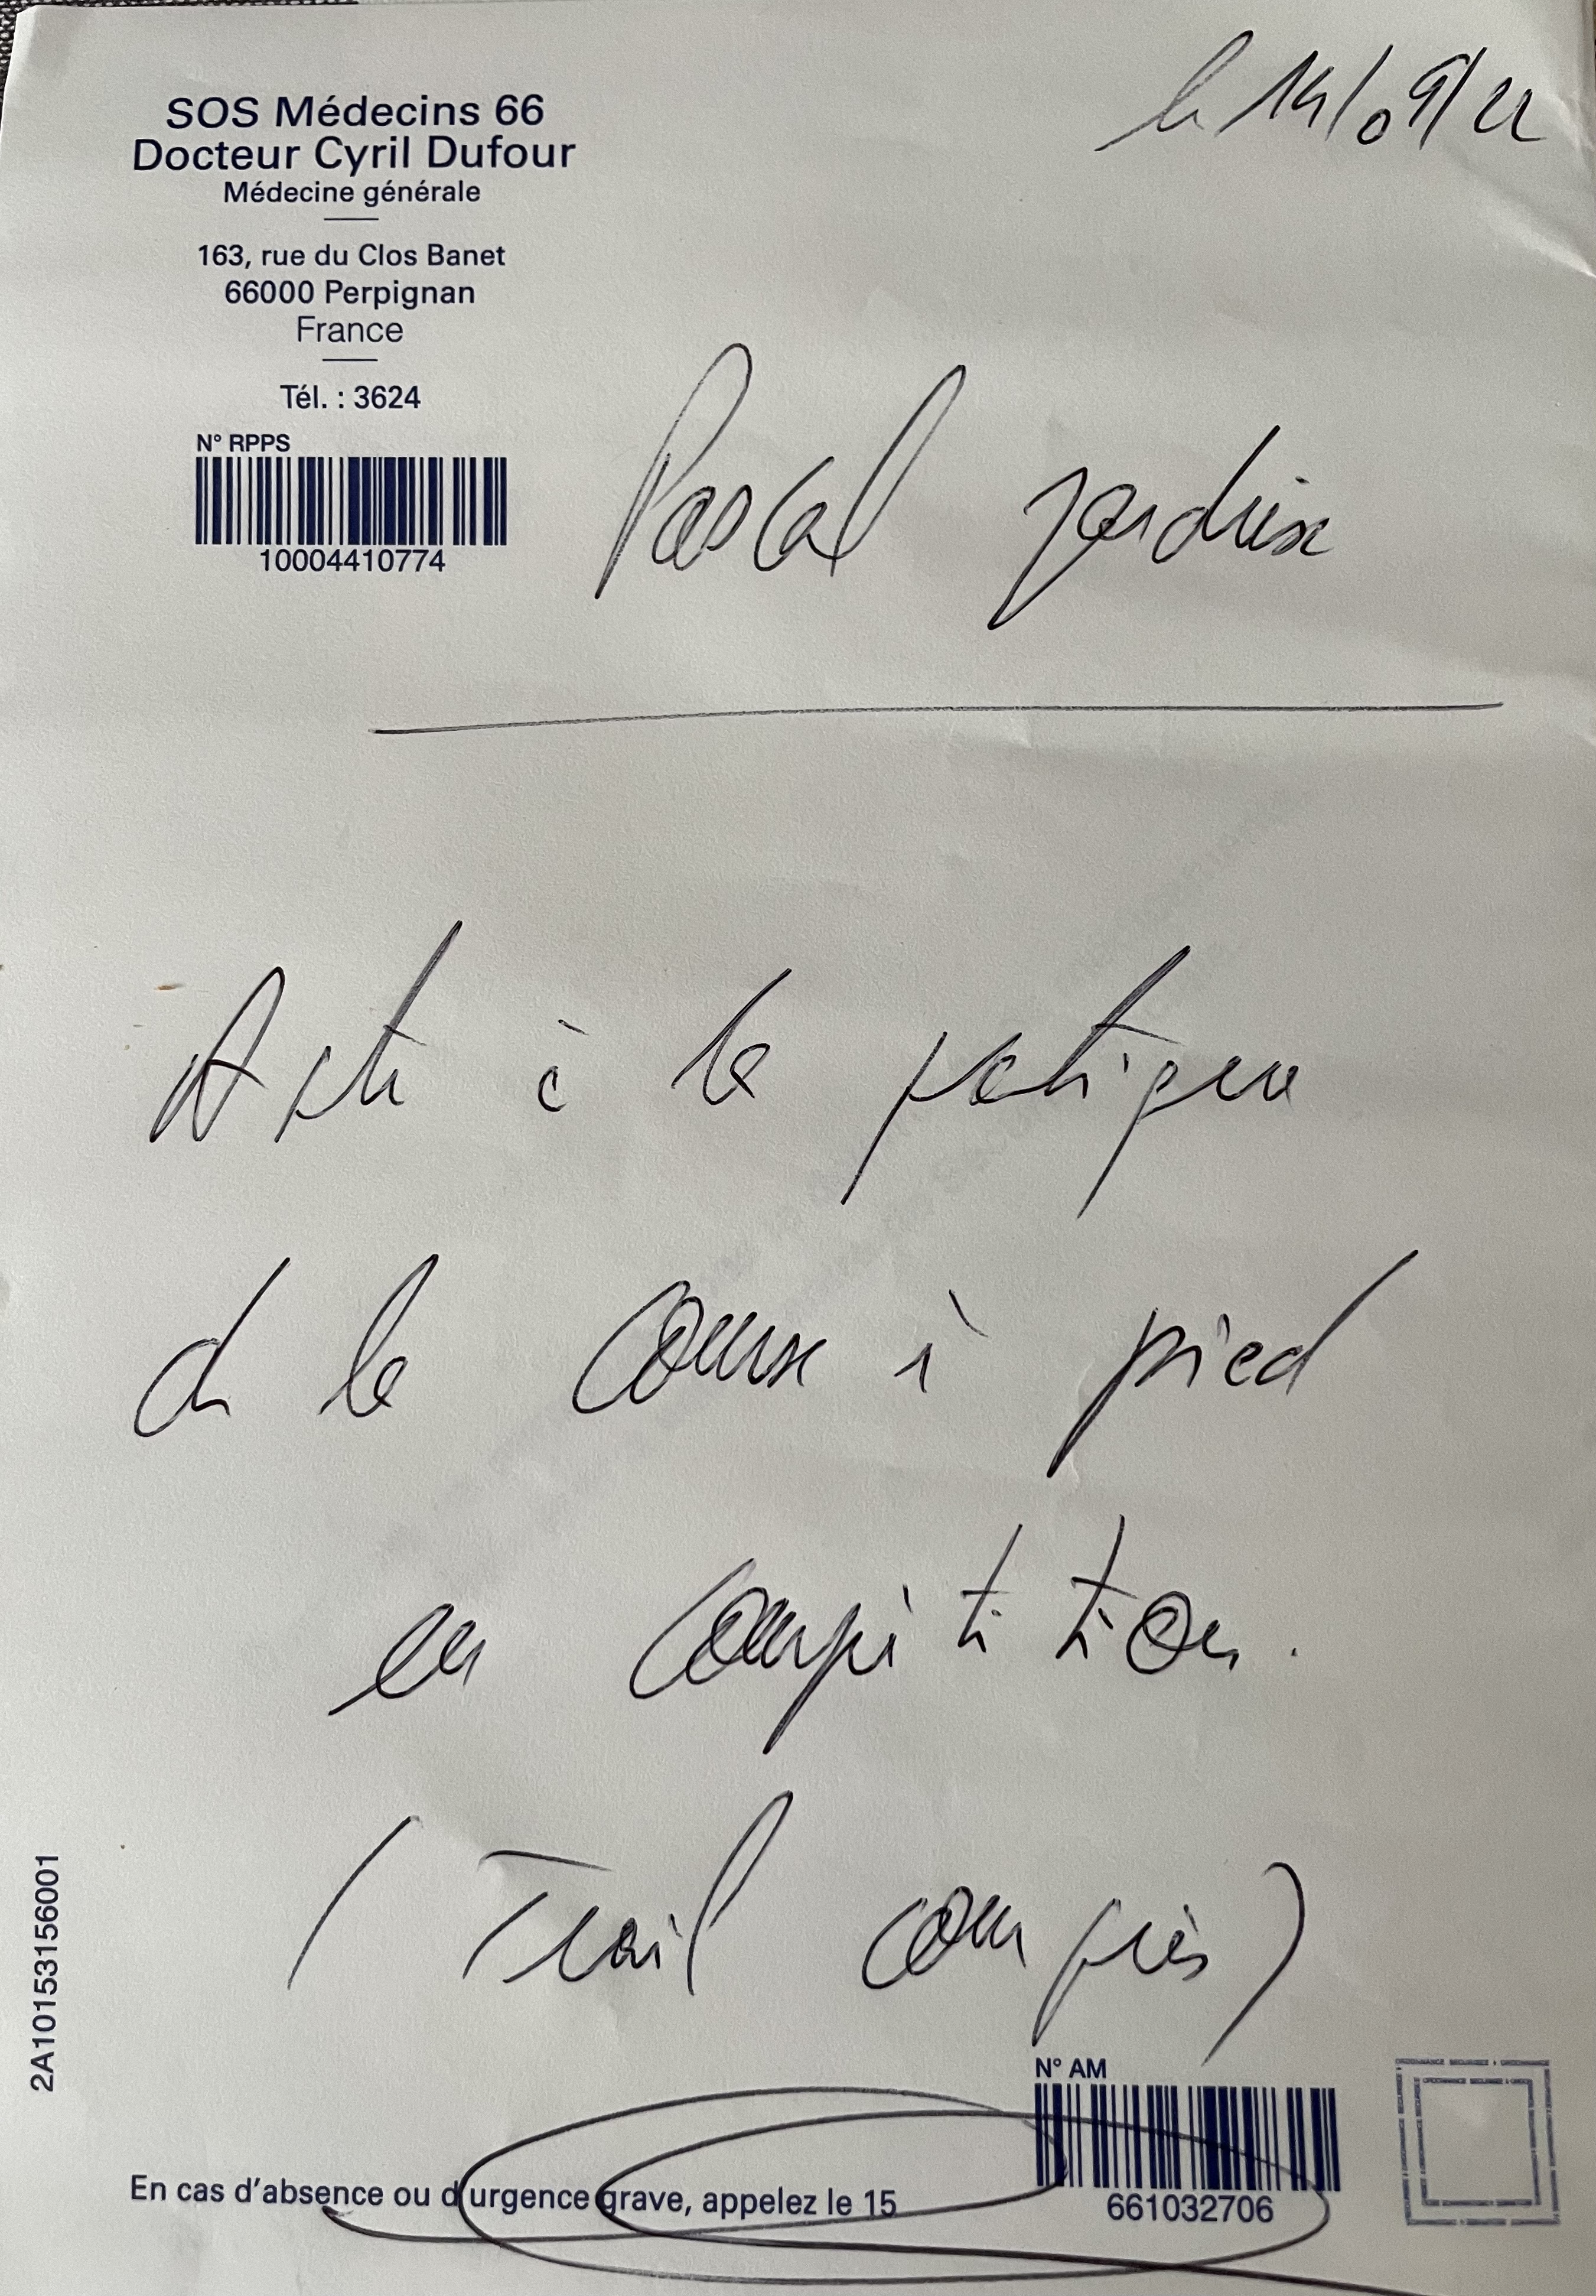 le 14/09/22
SOS Médecins 66
Docteur Cyril Dufour
Médecine générale
163, rue du Clos Banet
66000 Perpignan
France
Tél. : 3624
N° RPPS
10004410774
Pascal
Apte à la pratique
de la course à pied
en compétition.
(Trail compris)
2A10153156001
N° AM
661032706
En cas d'absence ou d'urgence grave, appelez le 15